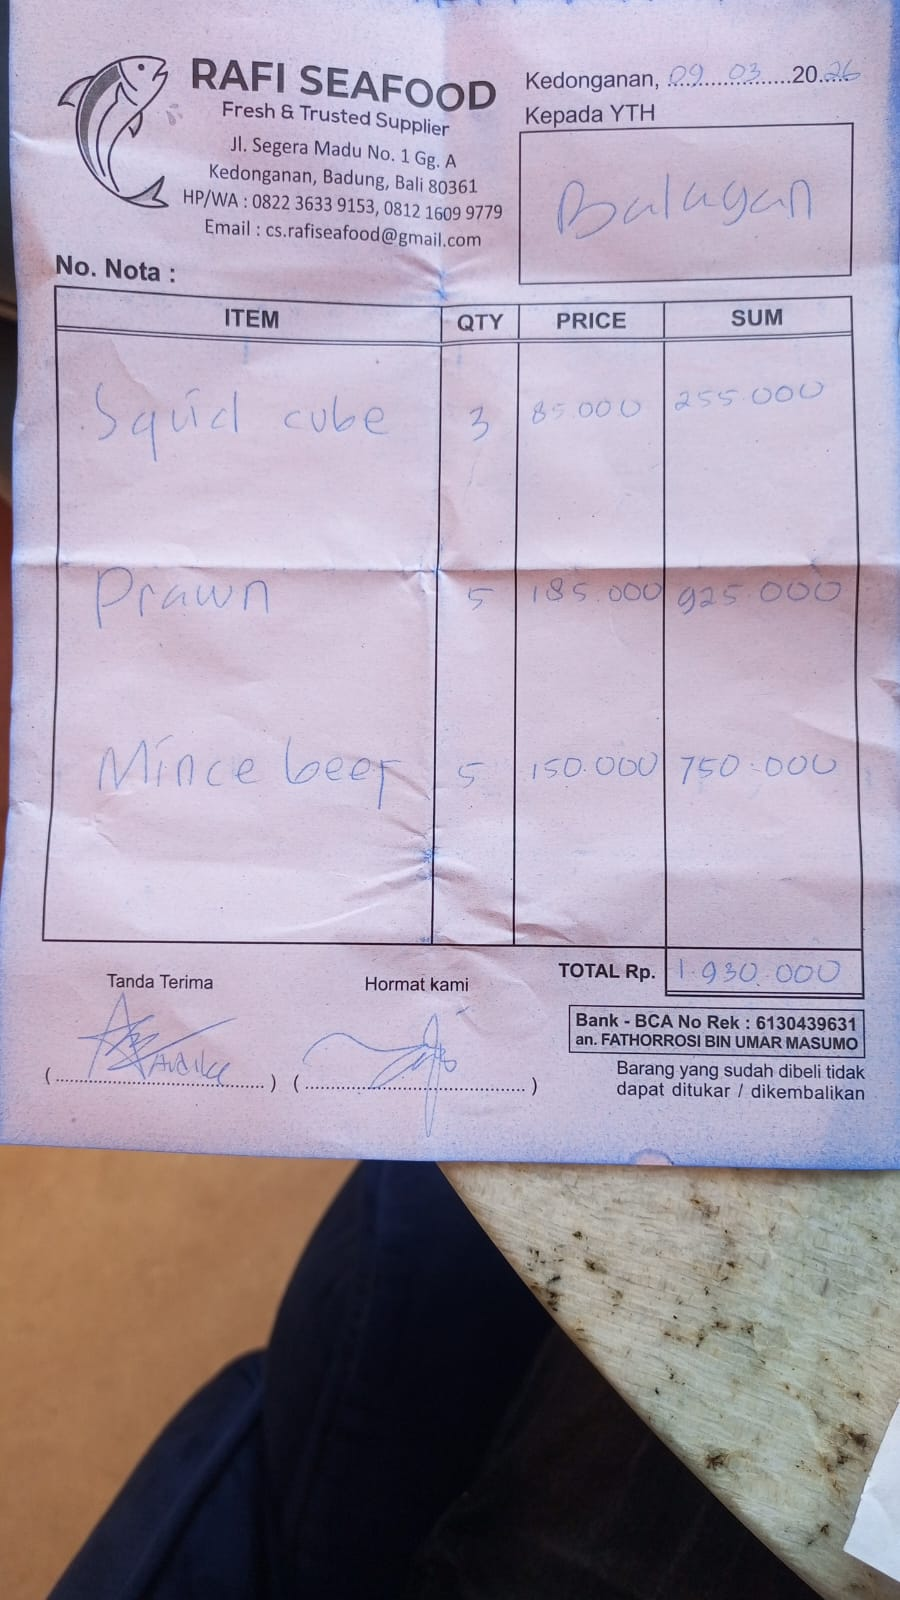 RAFI SEAFOOD
Fresh & Trusted Supplier
Jl. Segera Madu No. 1 Gg. A
Kedonganan, Badung, Bali 80361
HP/WA : 0822 3633 9153, 0812 1609 9779
Email : cs.rafiseafood@gmail.com
Kedonganan, 09 03 2026
Kepada YTH
Balagan
No. Nota :
ITEM QTY PRICE SUM
Squid cube 3 85.000 255.000
Prawn 5 185.000 925.000
Mince beef 5 150.000 750.000
TOTAL Rp. 1.930.000
Tanda Terima Hormat kami
Bank - BCA No Rek : 6130439631
an. FATHORROSI BIN UMAR MASUMO
Barang yang sudah dibeli tidak
dapat ditukar / dikembalikan